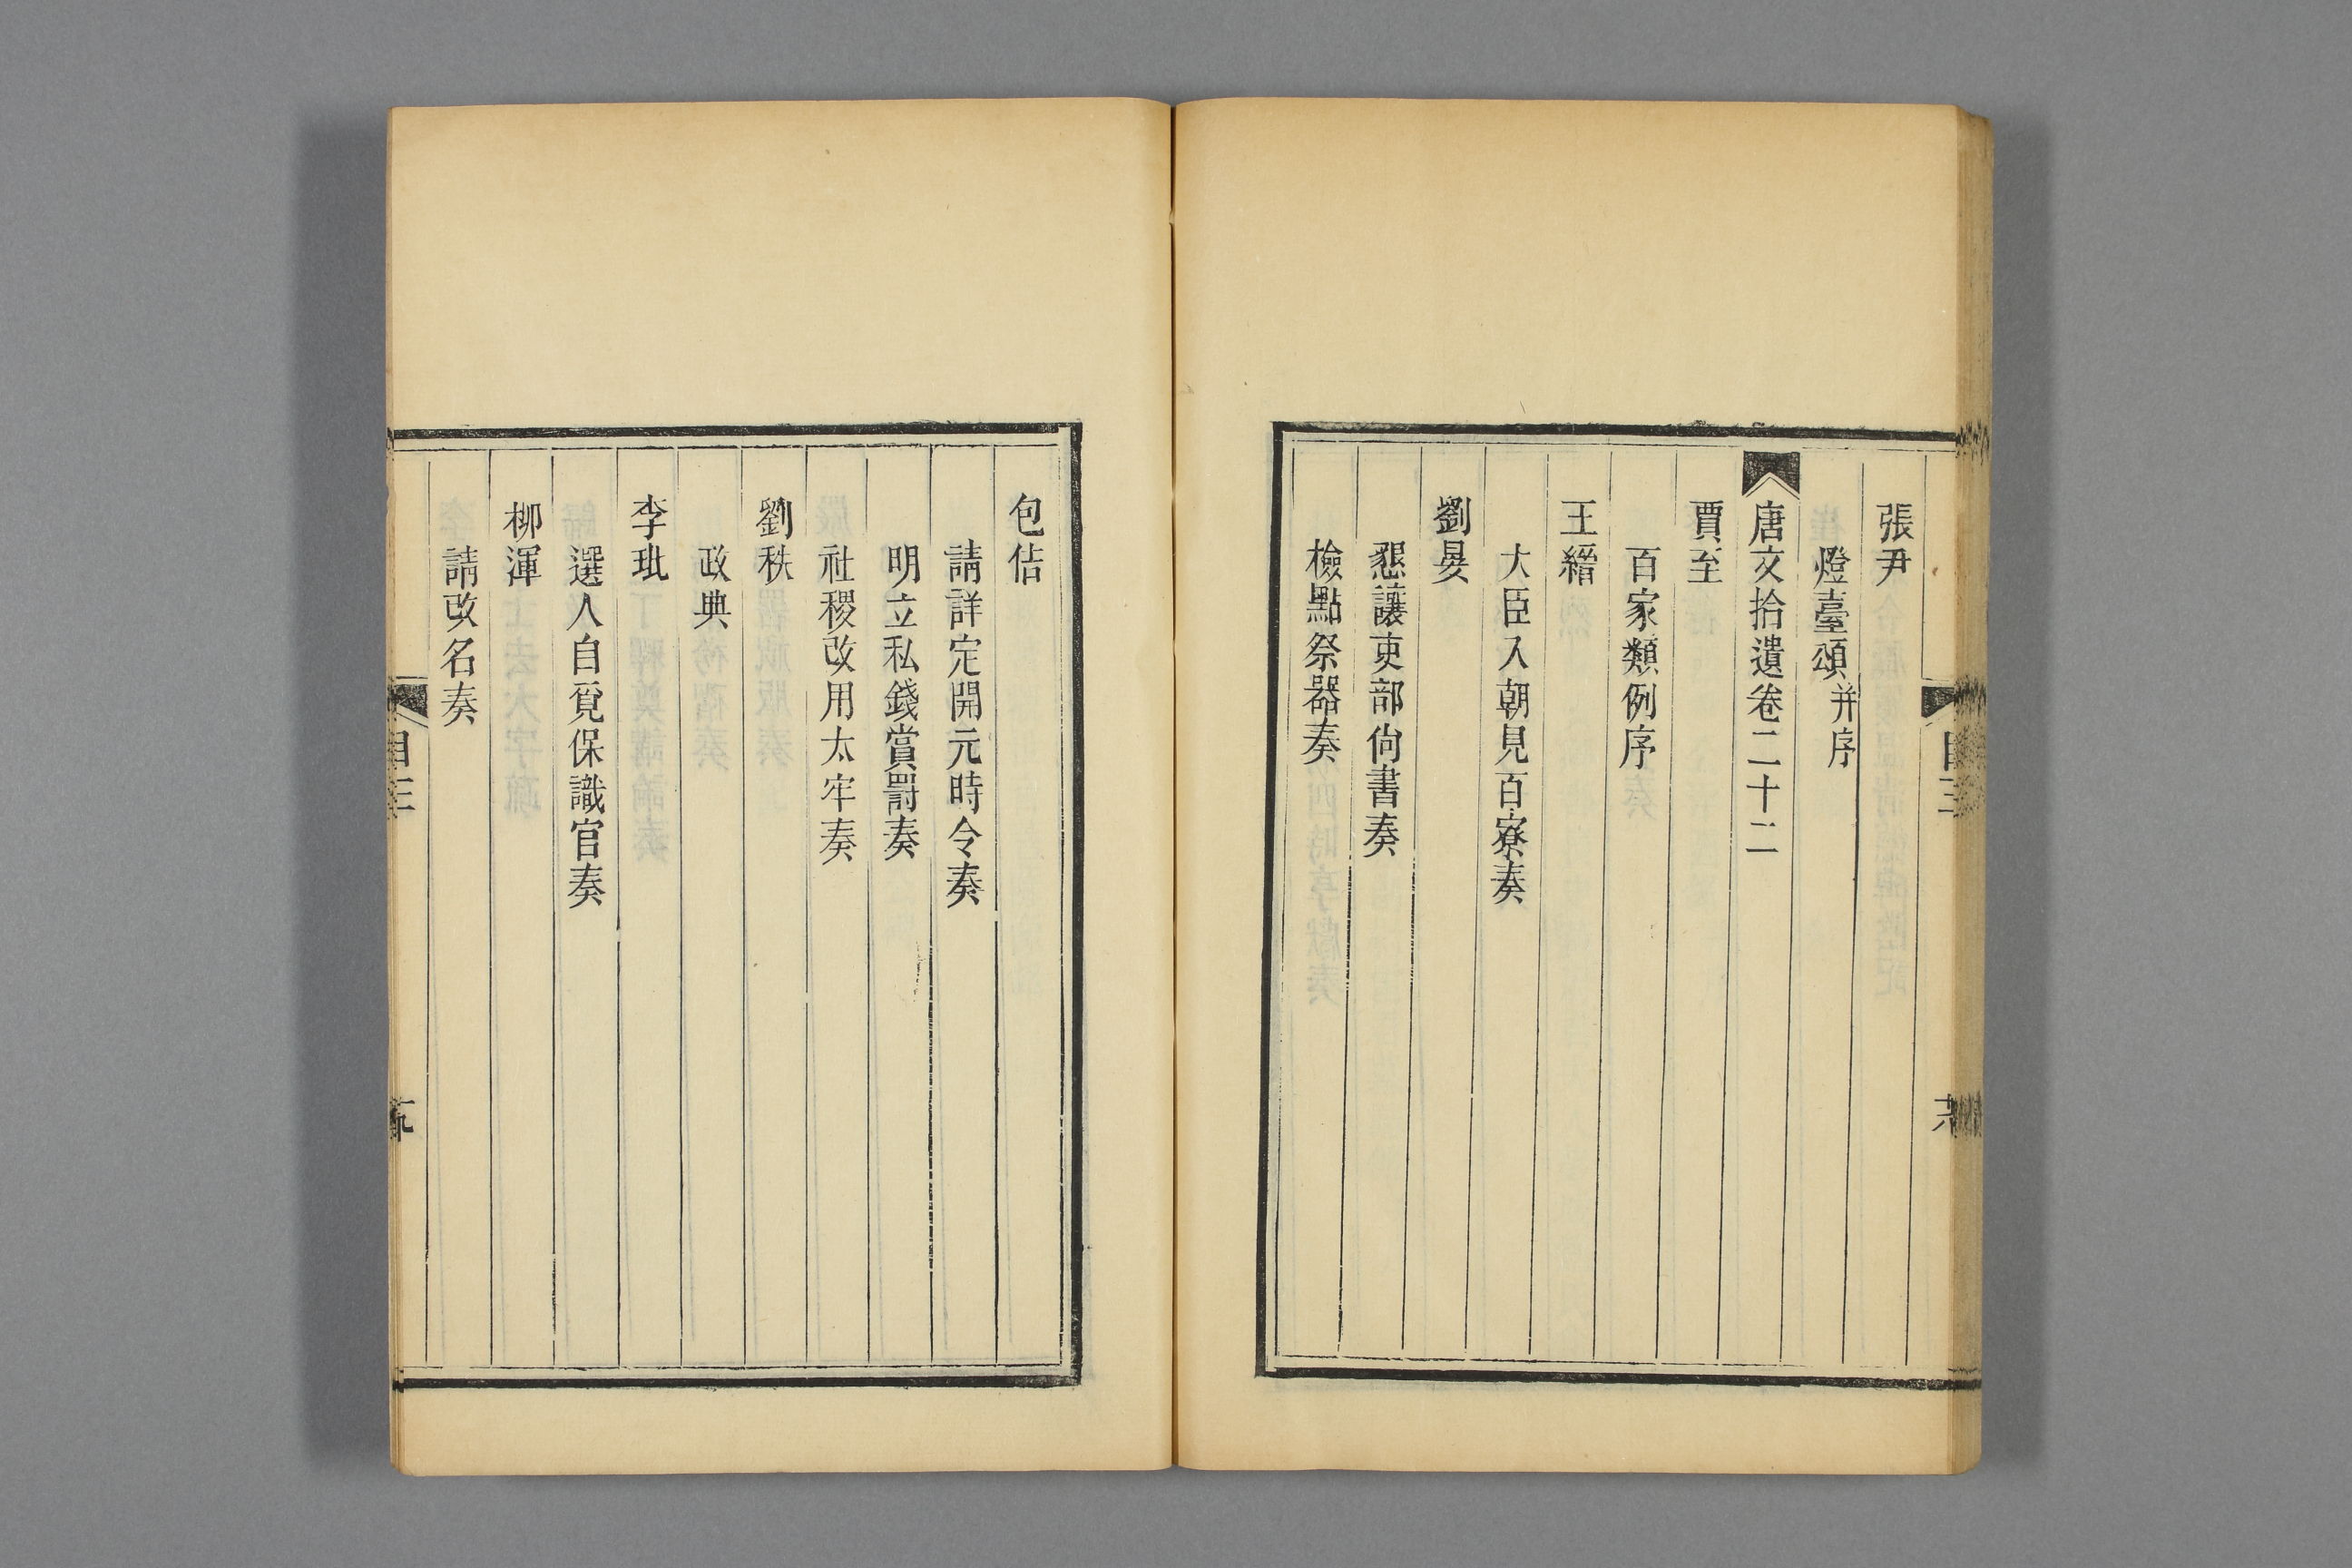 張尹
燈臺頌并序
唐文拾遺卷二十二
賈至
百家類例序
王縉
大臣入朝見百寮奏
劉晏
懇讓吏部尙書奏
檢點祭器奏
包佶
請詳定開元時令奏
明立私錢賞罰奏
社稷改用太牢奏
劉秩
政典
李玭
選人自覓保識官奏
柳渾
請改名奏
目三